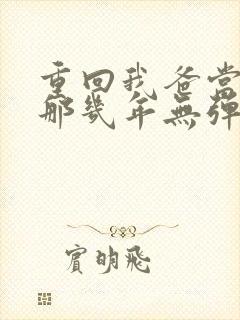 重回我爸當
那幾年無彈
賓明飛